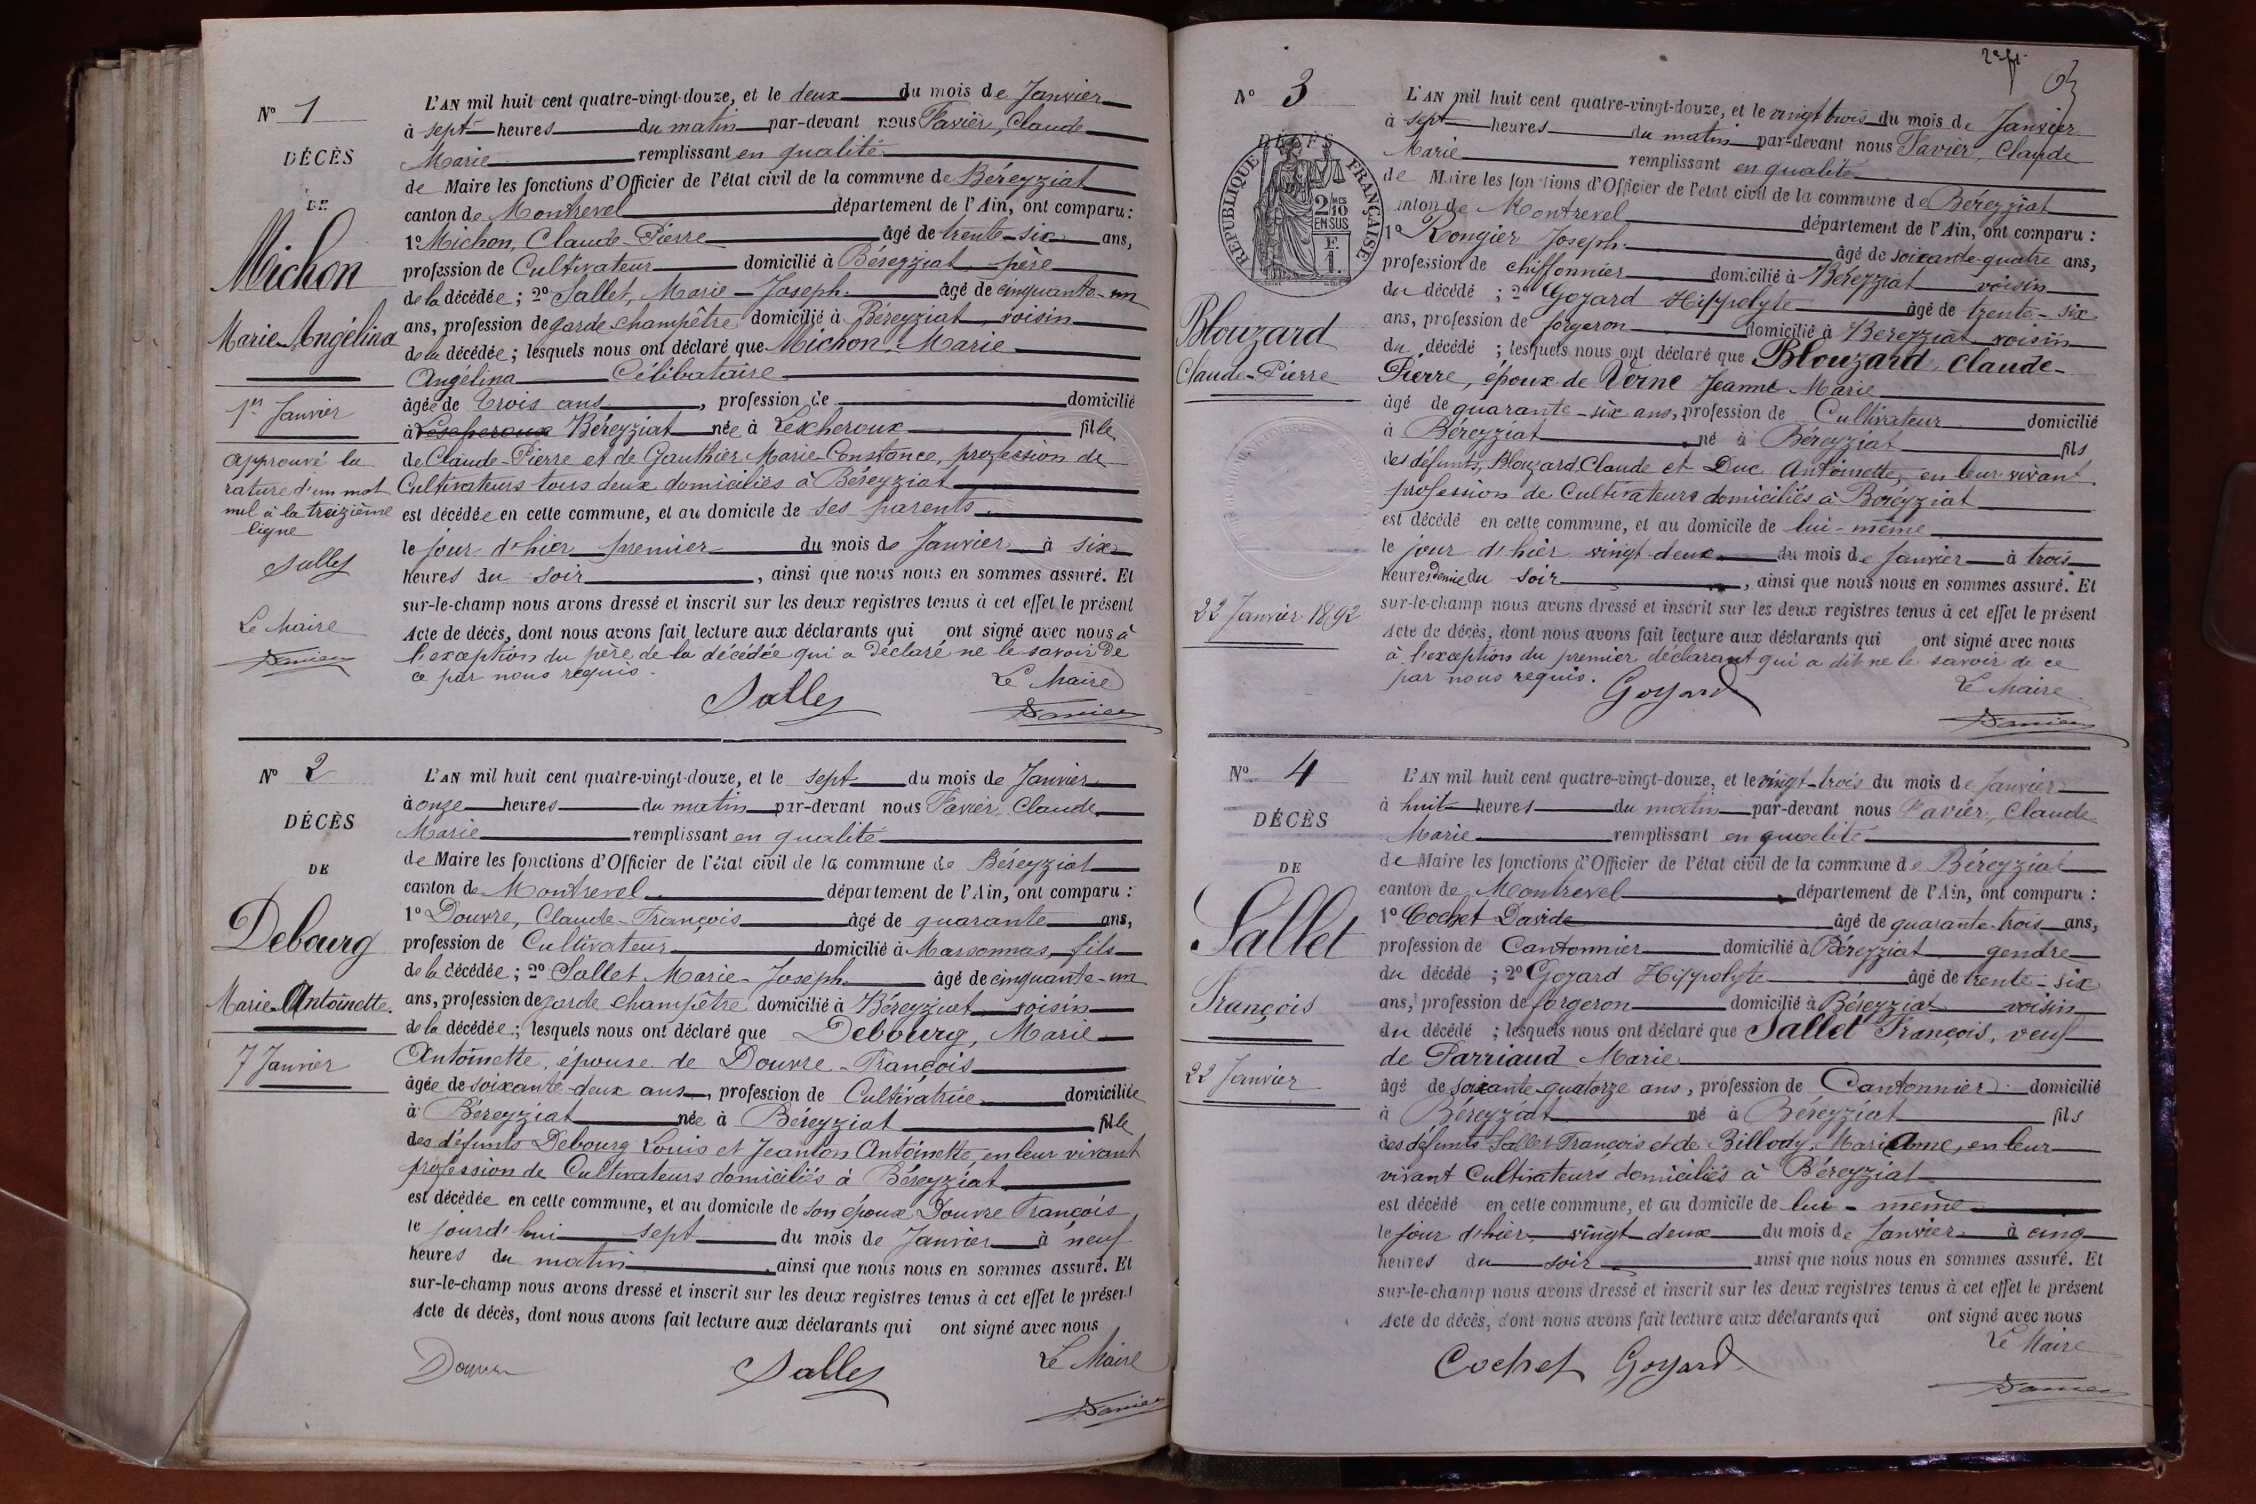 N° 1
DÉCÈS
DE
Michon
Marie-Angélina
1er Janvier
Approuvé la
rature d'un mot
nul à la treizième
ligne
Sallet
Le Maire
L'AN mil huit cent quatre-vingt-douze, et le deux du mois de Janvier
à sept heures du matin par-devant nous Favier, Claude
Marie remplissant en qualité
de Maire les fonctions d'Officier de l'état civil de la commune de Béreyziat
canton de Montrevel département de l'Ain, ont comparu :
1° Michon, Claude-Pierre âgé de trente-six ans,
profession de Cultivateur domicilié à Béreyziat père
de la décédée ; 2° Sallet, Marie-Joseph âgé de cinquante-un
ans, profession de garde champêtre domicilié à Béreyziat voisin
de la décédée ; lesquels nous ont déclaré que Michon, Marie
Angélina Célibataire
âgée de trois ans, profession de domicilié
à Lescheroux Béreyziat née à Lescheroux fille
de Claude-Pierre et de Gauthier Marie-Constance, profession de
Cultivateurs tous deux domiciliés à Béreyziat
est décédée en cette commune, et au domicile de ses parents
le jour d'hier premier du mois de Janvier à six
heures du soir, ainsi que nous nous en sommes assuré. Et
sur-le-champ nous avons dressé et inscrit sur les deux registres tenus à cet effet le présent
Acte de décès, dont nous avons fait lecture aux déclarants qui ont signé avec nous à
l'exception du père de la décédée qui a déclaré ne le savoir de
ce par nous requis.
Sallet
Le Maire
Favier
N° 2
DÉCÈS
DE
Debourg
Marie-Antoinette.
7 Janvier
L'AN mil huit cent quatre-vingt-douze, et le sept du mois de Janvier
à onze heures du matin par-devant nous Favier, Claude
Marie remplissant en qualité
de Maire les fonctions d'Officier de l'état civil de la commune de Béreyziat
canton de Montrevel département de l'Ain, ont comparu :
1° Douvre, Claude-François âgé de quarante ans,
profession de Cultivateur domicilié à Marsonnas fils
de la décédée ; 2° Sallet Marie-Joseph âgé de cinquante-un
ans, profession de garde champêtre domicilié à Béreyziat voisin
de la décédée ; lesquels nous ont déclaré que Debourg, Marie
Antoinette, épouse de Douvre-François
âgée de soixante-deux ans, profession de Cultivatrice domiciliée
à Béreyziat née à Béreyziat fille
des défunts Debourg Louis et Jeanton Antoinette, en leur vivant
profession de Cultivateurs domiciliés à Béreyziat
est décédée en cette commune, et au domicile de son époux Douvre François
le jourd'hui sept du mois de Janvier à neuf
heures du matin, ainsi que nous nous en sommes assuré. Et
sur-le-champ nous avons dressé et inscrit sur les deux registres tenus à cet effet le présent
Acte de décès, dont nous avons fait lecture aux déclarants qui ont signé avec nous
Douvre
Sallet
Le Maire
Favier
N° 3
DÉCÈS
RÉPUBLIQUE FRANÇAISE
2/10
EN SUS
F.
1.
Blouzard
Claude-Pierre
22 Janvier 1892
L'AN mil huit cent quatre-vingt-douze, et le vingt trois du mois de Janvier
à sept heures du matin par-devant nous Favier, Claude
Marie remplissant en qualité
de Maire les fonctions d'Officier de l'état civil de la commune de Béreyziat
canton de Montrevel département de l'Ain, ont comparu :
1° Rongier Joseph âgé de soixante-quatre ans,
profession de chiffonnier domicilié à Béreyziat voisin
du décédé ; 2° Gozard Hippolyte âgé de trente-six
ans, profession de forgeron domicilié à Béreyziat voisin
du décédé ; lesquels nous ont déclaré que Blouzard, Claude-
Pierre, époux de Verne Jeanne-Marie
âgé de quarante-six ans, profession de Cultivateur domicilié
à Béreyziat né à Béreyziat fils
des défunts, Blouzard Claude et Duc Antoinette, en leur vivant
profession de Cultivateurs domiciliés à Béréyziat
est décédé en cette commune, et au domicile de lui-même
le jour d'hier vingt-deux du mois de Janvier à trois
heures demie du soir, ainsi que nous nous en sommes assuré. Et
sur-le-champ nous avons dressé et inscrit sur les deux registres tenus à cet effet le présent
Acte de décès, dont nous avons fait lecture aux déclarants qui ont signé avec nous
à l'exception du premier déclarant qui a dit ne le savoir de ce
par nous requis.
Goyard
Le Maire
Favier
N° 4
DÉCÈS
DE
Sallet
François
22 Janvier
L'AN mil huit cent quatre-vingt-douze, et le vingt-trois du mois de Janvier
à huit heures du matin par-devant nous Favier, Claude
Marie remplissant en qualité
de Maire les fonctions d'Officier de l'état civil de la commune de Béreyziat
canton de Montrevel département de l'Ain, ont comparu :
1° Cochet Davide âgé de quarante-trois ans,
profession de Cantonnier domicilié à Béreyziat gendre
du décédé ; 2° Gozard Hippolyte âgé de trente-six
ans, profession de forgeron domicilié à Béreyziat voisin
du décédé ; lesquels nous ont déclaré que Sallet François, veuf
de Parriaud Marie
âgé de soixante-quatorze ans, profession de Cantonnier domicilié
à Béreyziat né à Béreyziat fils
des défunts Sallet François et de Billody, Marie Anne, en leur
vivant cultivateurs domiciliés à Béreyziat
est décédé en cette commune, et au domicile de lui-même
le jour d'hier, vingt deux du mois de Janvier à cinq
heures du soir ainsi que nous nous en sommes assuré. Et
sur-le-champ nous avons dressé et inscrit sur les deux registres tenus à cet effet le présent
Acte de décès, dont nous avons fait lecture aux déclarants qui ont signé avec nous
Cochet Goyard
Le Maire
Favier